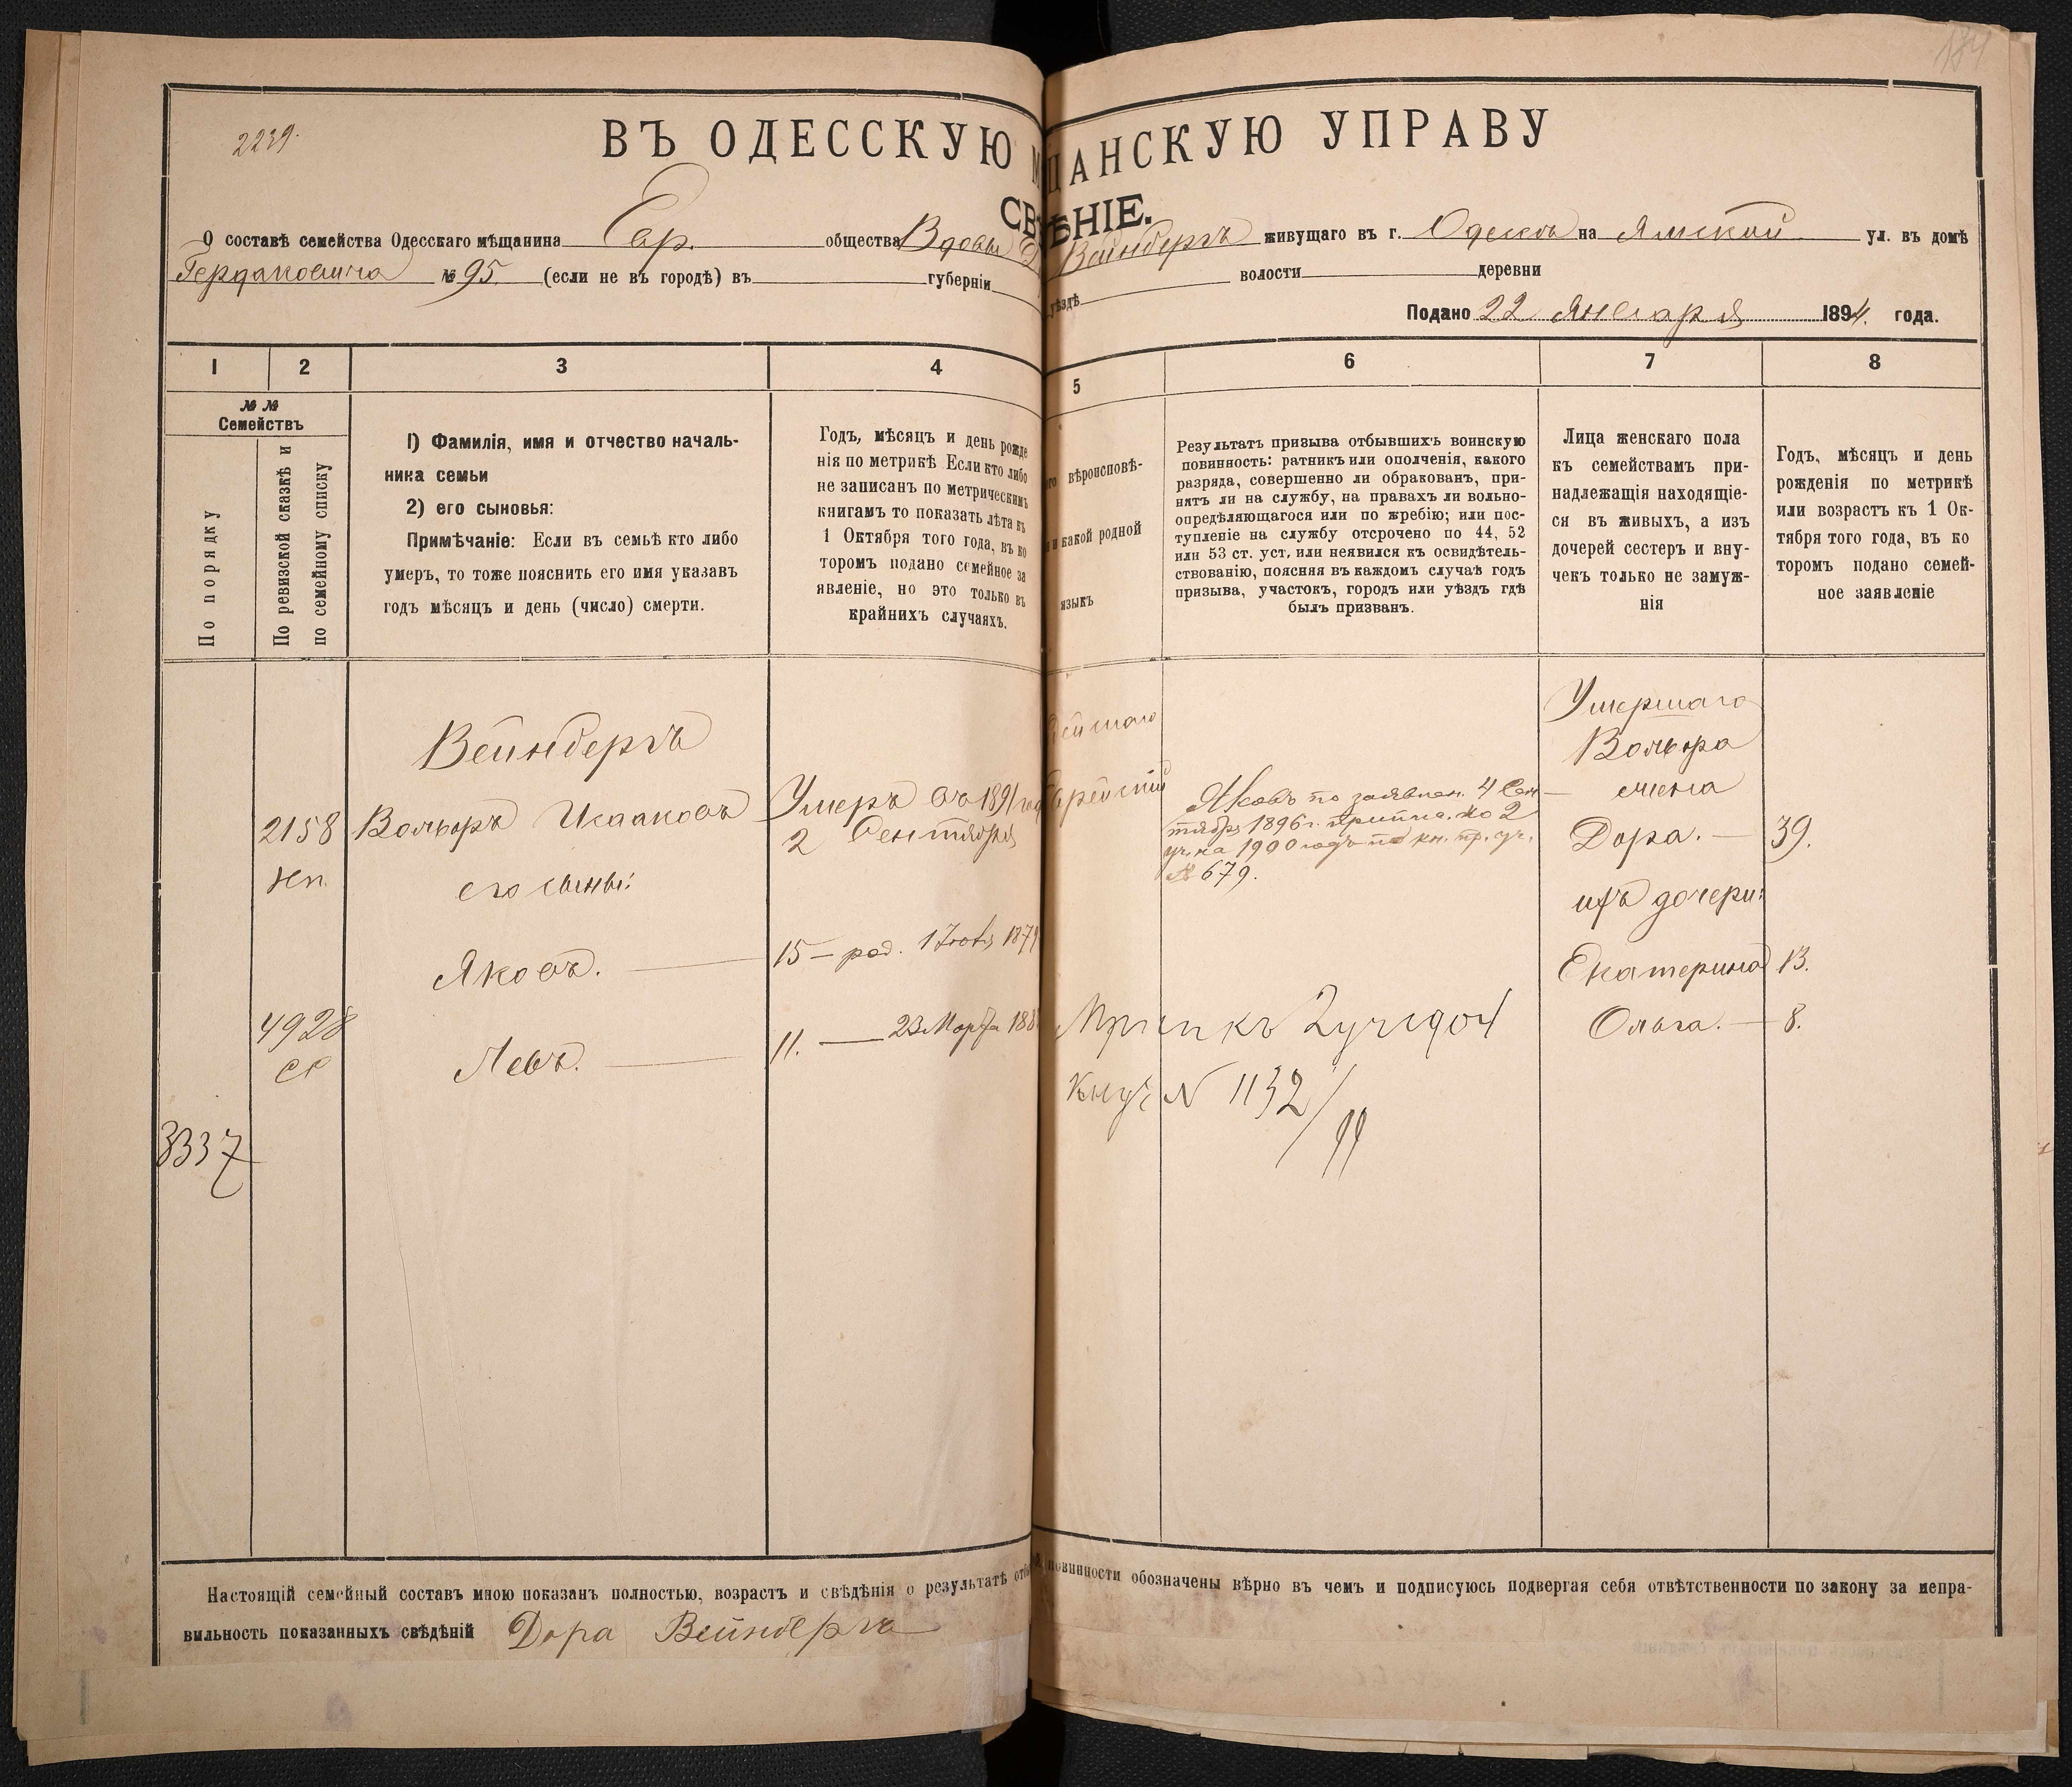 184
2239.
ВЪ ОДЕССКУЮ М ЩАНСКУЮ УПРАВУ
СВ ѢНІЕ.
О составѣ семейства Одесскаго мѣщанина Евр. общества Вдовы Д Вейнбергъ живущаго въ г. Одессѣ на Ямской ул. въ домѣ
№ 95. (если не въ городѣ) въ губерніи уѣздѣ волости деревни
Подано 22 Января 1894 года.
1 2 3 4 5 6 7 8
№ №
Семействъ
По порядку
По ревизской сказкѣ и
по семейному списку
1) Фамилія, имя и отчество началь-
ника семьи
2) его сыновья:
Примѣчаніе: Если въ семьѣ кто либо
умеръ, то тоже пояснить его имя указавъ
годъ мѣсяцъ и день (число) смерти.
Годъ, мѣсяцъ и день рожде
нія по метрикѣ Если кто либо
не записанъ по метрическимъ
книгамъ то показать лѣта къ
1 Октября того года, въ ко
торомъ подано семейное за
явленіе, но это только въ
крайнихъ случаяхъ.
го вѣроисповѣ-
и какой родной
языкъ
Результатъ призыва отбывшихъ воинскую
повинность: ратникъ или ополченія, какого
разряда, совершенно ли обракованъ, при-
нятъ ли на службу, на правахъ ли вольно-
опредѣляющагося или по жребію; или пос-
тупленіе на службу отсрочено по 44, 52
или 53 ст. уст, или неявился къ освидѣтель-
ствованію, поясняя въ каждомъ случаѣ годъ
призыва, участокъ, городъ или уѣздъ гдѣ
былъ призванъ.
Лица женскаго пола
къ семействамъ при-
надлежащія находящіе-
ся въ живыхъ, а изъ
дочерей сестеръ и вну-
чекъ только не замуж-
нія
Годъ, мѣсяцъ и день
рожденія по метрикѣ
или возрастъ къ 1 Ок-
тября того года, въ ко
торомъ подано семей-
ное заявленіе
Вейнбергъ
2158 Вольфъ Исааковъ Умеръ въ 1891 год
2 Сентября
его сыны:
Яковъ. — 15 — род. 1879
4928
Левъ. — 11. — 23 Марта 188
3337
Яковъ по заявлен. 4 Сен-
тября 1896 г. припис. ко 2
уч. на 1900 годъ по кн. пр. уч.
№ 679.
къ 2 уч
N 1132/99
Умершаго
Вольфа
жена
Дора. — 39.
ихъ дочери:
Екатерина 13.
Ольга. — 8.
Настоящій семейный составъ мною показанъ полностью, возрастъ и свѣдѣнія о результатѣ отб повинности обозначены вѣрно въ чемъ и подписуюсь подвергая себя отвѣтственности по закону за непра-
вильность показанныхъ свѣдѣній Дора Вейнбергъ